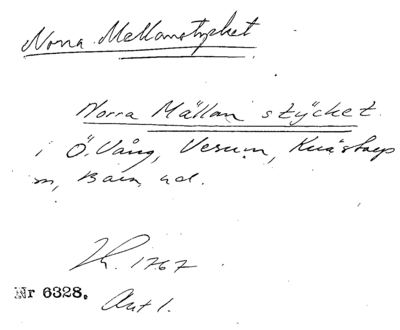 Norra Mellanstycket
Norra Mällan stÿcket.
i Ö. Vång, Verum, Knästorp
m, Bara hd.
1767
Nr 6328. Akt 1.